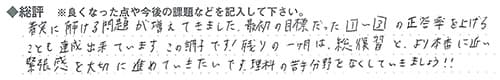 ◆総評 ※良くなった点や今後の課題などを記入して下さい。
着実に解ける問題が増えてきました。最初の目標だった①~②の正答率を上げる
ことも達成出来ています。この調子です！残りの一ヶ月は、総復習と、より本番に近い
緊張感を大切に進めていきたいです。理科の苦手分野をなくしていきましょう!!